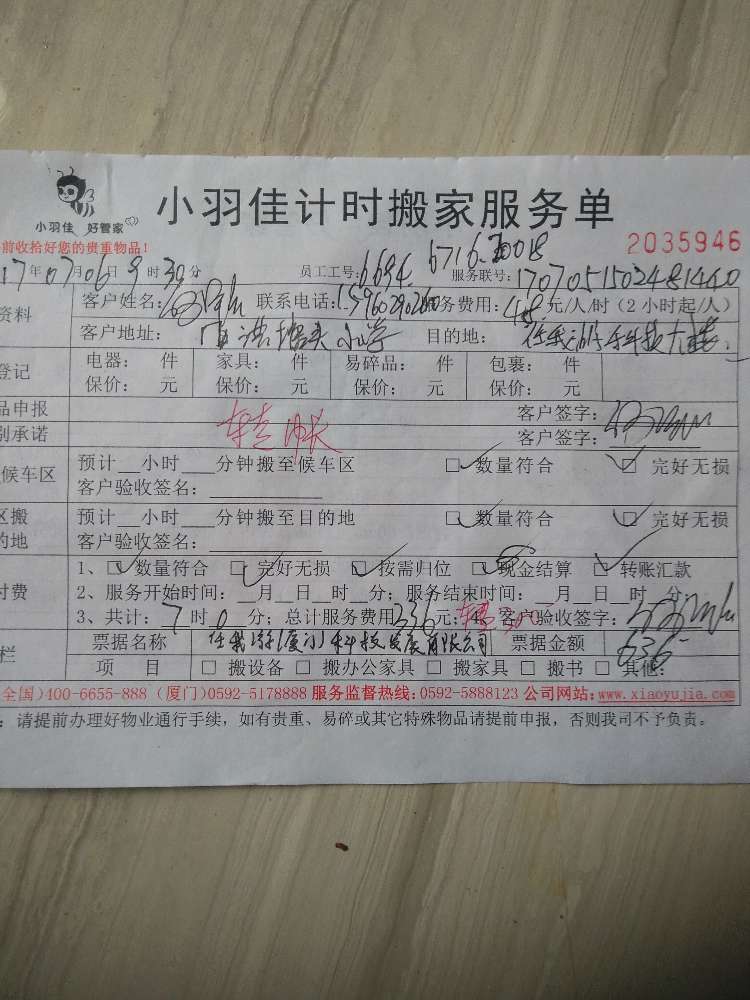 小羽佳 好管家
小羽佳计时搬家服务单
前收拾好您的贵重物品！
2035946
17年07月06日9时30分 员工工号：6694 6716 服务联号：1707051502481440
资料 客户姓名： 联系电话： 服务费用：48元/人/时（2小时起/人）
客户地址： 小学 目的地：
登记 电器： 件 家具： 件 易碎品： 件 包裹： 件
保价： 元 保价： 元 保价： 元 保价： 元
品申报 客户签字：
别承诺 客户签字：
候车区 预计__小时___分钟搬至候车区 □数量符合 □完好无损
客户验收签名：
区搬 预计__小时___分钟搬至目的地 □数量符合 □完好无损
的地 客户验收签名：
1、□数量符合 □完好无损 □按需归位 □现金结算 □转账汇款
付费 2、服务开始时间：__月__日__时__分；服务结束时间：__月__日__时__分；
3、共计：7时0分；总计服务费用336元； 客户验收签字：
栏 票据名称 任我游（厦门）科技发展有限公司 票据金额 636
项 目 □搬设备 □搬办公家具 □搬家具 □搬书 □其他：
全国）400-6655-888（厦门）0592-5178888 服务监督热线：0592-5888123 公司网站：www.xiaoyujia.com
：请提前办理好物业通行手续，如有贵重、易碎或其它特殊物品请提前申报，否则我司不予负责。